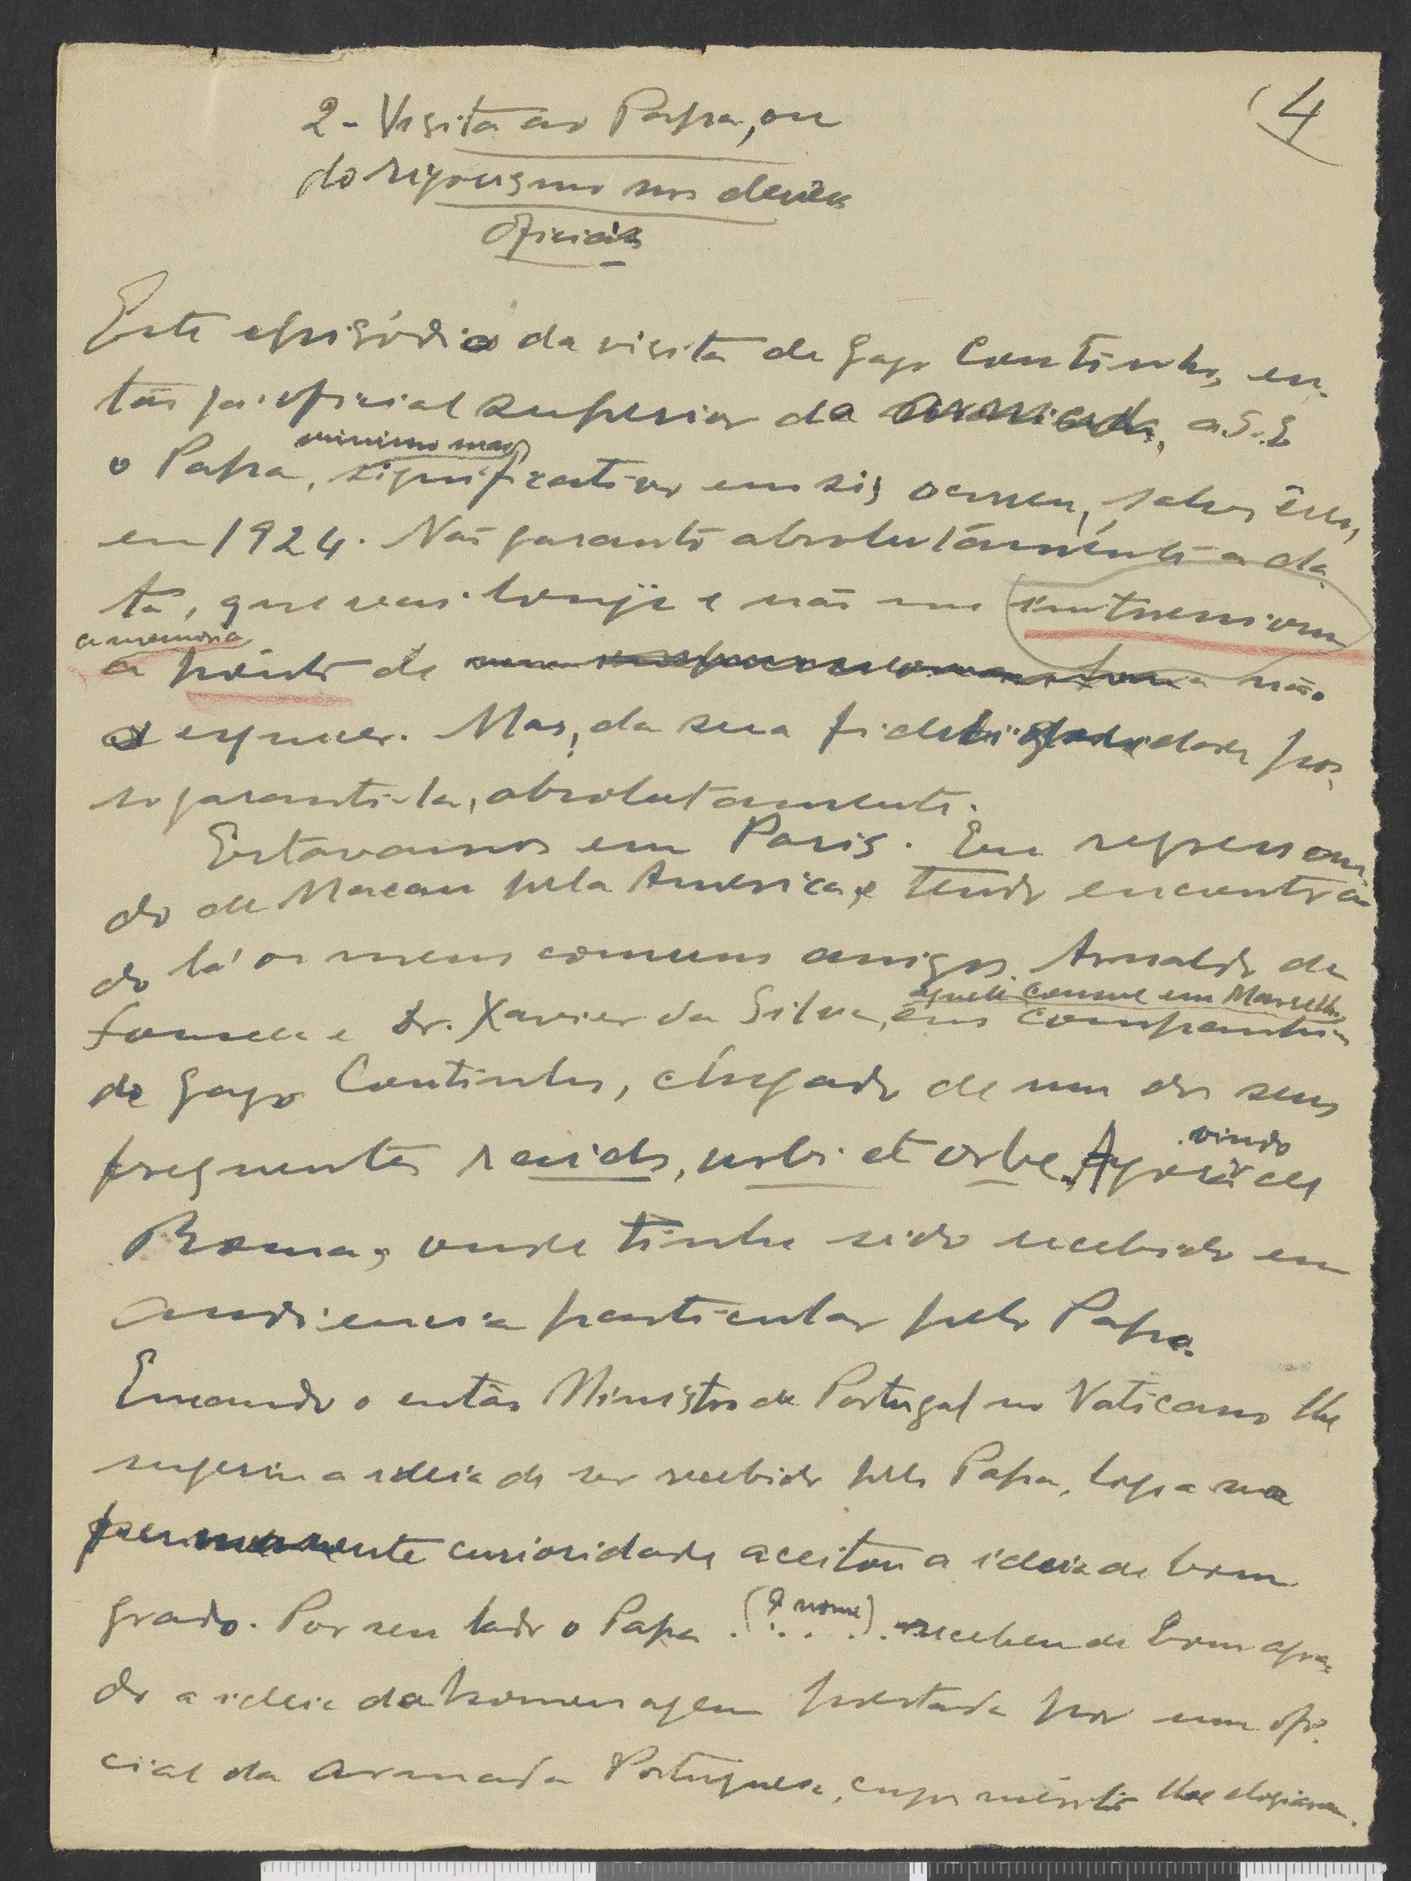 4
2 - Visita ao Papa, ou
do rigorismo nos deveres
oficiais
Este episódio da visita de Gago Coutinho, en-
tão já oficial superior da Armada, a S. S.
o Papa, mínimo mas significativo em si, ocorreu, salvo êrro,
em 1924. Não garanto absolutamente a da-
ta, que vai longe e não me
a memoria
a ponto de não
a esquecer. Mas, da sua fidelidade pos-
so garanti-la, absolutamente.
Estavamos em Paris. Eu regressan-
do de Macau pela America, e tendo encontra-
do lá os meus comuns amigos Arnaldo da
Fonseca e Dr. Xavier da Silva, aquele consul em Marselha, em companhia
de Gago Coutinho, chegado de um dos seus
frequentes raids, urbi et orbe. Agora vindo de
Roma, onde tinha sido recebido em
audiencia particular pelo Papa.
Enquando o então Ministro de Portugal no Vaticano lhe
sugeriu a ideia de ser recebido pelo Papa, logo a sua
permanente curiosidade aceitou a ideia de bom
grado. Por seu lado o Papa (? nome) . . . . recebeu de bom agra-
do a ideia da homenagem prestada por um ofi-
cial da Armada Portuguesa, cujo mérito lhe elogiaram.